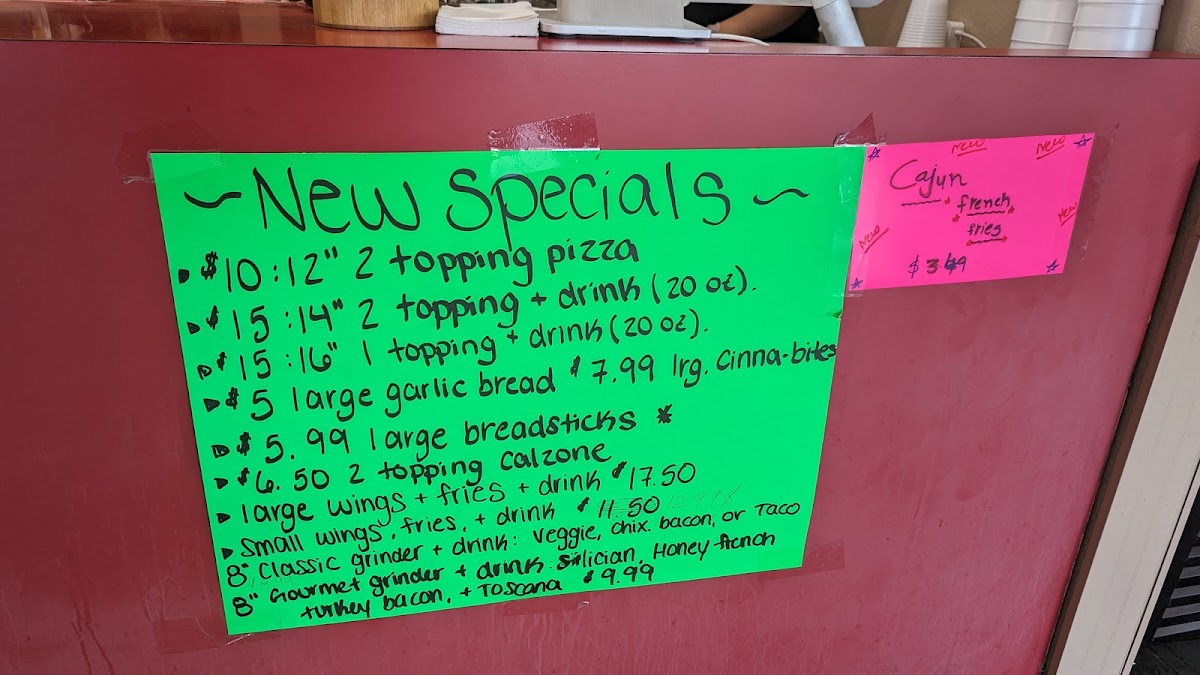 ~New Specials~
$10:12" 2 topping pizza
$15:14" 2 topping + drink (20 oz).
$15:16" 1 topping + drink (20 oz).
$5 large garlic bread $7.99 lrg. Cinna-bites
$5.99 large breadsticks *
$6.50 2 topping calzone
large wings + fries + drink $17.50
Small wings, fries, + drink $11.50
8" Classic grinder + drink: Veggie, chix. bacon, or Taco
8" Gourmet grinder + drink: Silician, Honey french
turkey bacon, + Toscana $9.99
New New
Cajun
french
fries
New New
$3.49